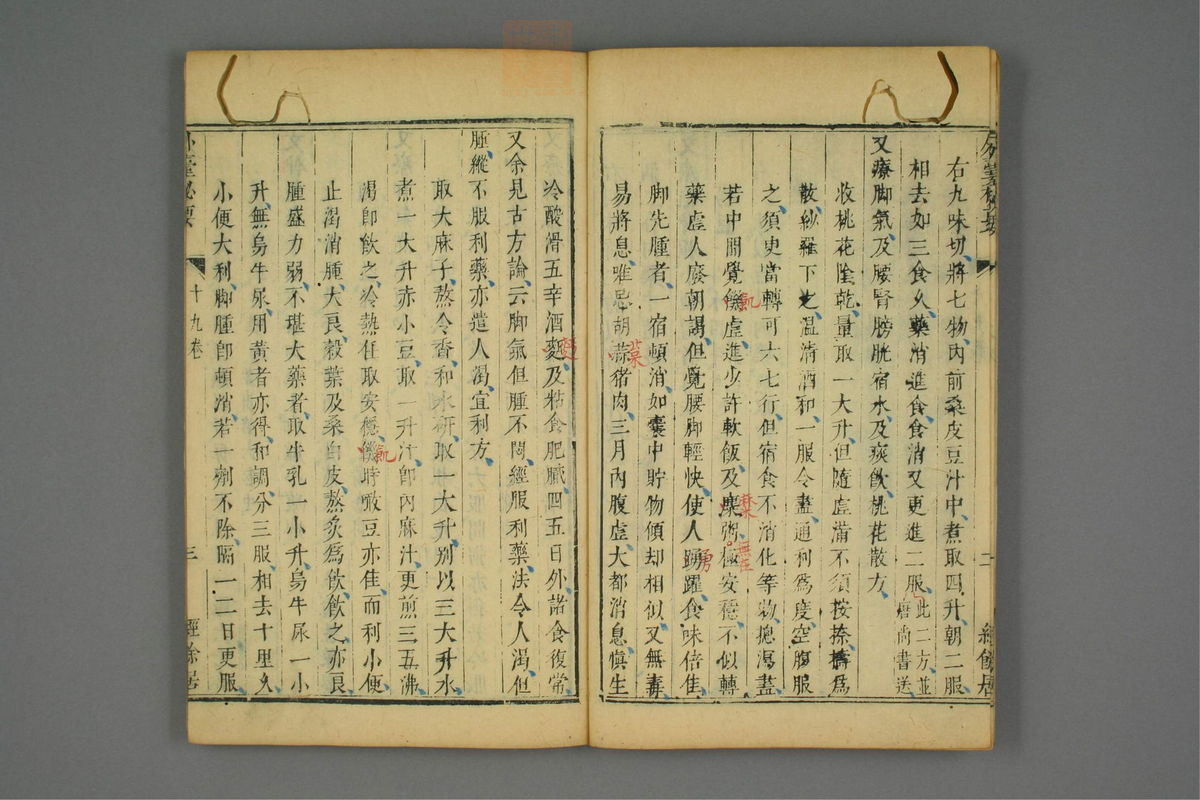 右九味切將七物內前桑皮豆汁中煮取四升朝二服
相去如三食久藥消進食食消又更進二服此二方並唐尚書送
又療脚氣及腰腎膀胱宿水及痰飲桃花散方
收桃花陰乾量取一大升但隨虛滿不須按捺擣爲
散紗羅下之溫清酒和一服令盡通利爲度空腹服
之須臾當轉可六七行但宿食不消化等物摠瀉盡
若中間覺饑虛進少許軟飯及糜粥極安穩不似轉
藥虛人廢朝謁但覺腰脚輕快使人踴躍食味倍佳
脚先腫者一宿頓消如囊中貯物傾却相似又無毒
易將息唯忌胡蒜猪肉三月內腹虛大都消息慎生
外臺秘要 二 經餘居
冷酸滑五辛酒麪及粘食肥膩四五日外諸食復常
又余見古方論云脚氣但腫不悶經服利藥法令人渴但
腫縱不服利藥亦遣人渴宜利方
取大麻子熬令香和水研取一大升別以三大升水
煮一大升赤小豆取一升汁卽內麻汁更煎三五沸
渴卽飲之冷熱任取安穩饑時啖豆亦佳而利小便
止渴消腫大良穀葉及桑白皮熬炙爲飲飲之亦良
腫盛力弱不堪大藥者取牛乳一小升烏牛尿一小
升無烏牛尿用黃者亦得和調分三服相去十里久
小便大利脚腫卽頓消若一劑不除隔一二日更服
外臺秘要 十九卷 三 經餘居
飢
糜
無在
勇